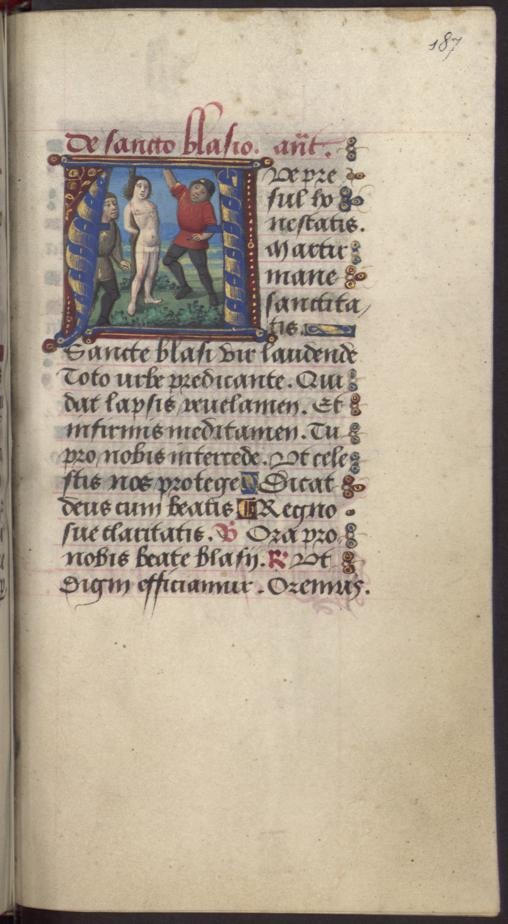 187
De sancto blasio. añt.
Ave pre
sul ho
nestatis.
Martir
mane
sanctita
tis.
Sancte blasi vir laudende
Toto urbe predicante. Qui
dat lapsis revelamen. Et
infirmis meditamen. Tu
pro nobis intercede. Vt cele
stis nos protege Dicat
deus cum beatis Regno
sue claritatis. V Ora pro
nobis beate blasij. R Vt
digni efficiamur. Oremus.